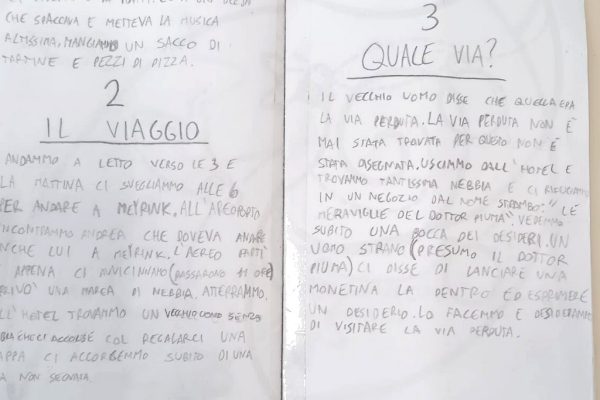 CHE SPACCAVA E METTEVA LA MUSICA
ALTISSIMA, MANGIAMMO UN SACCO DI
TARTINE E PEZZI DI PIZZA.
2
IL VIAGGIO
ANDAMMO A LETTO VERSO LE 3 E
LA MATTINA CI SVEGLIAMMO ALLE 6
PER ANDARE A MEYRINK. ALL'AREOPORTO
INCONTRAMMO ANDREA CHE DOVEVA ANDARE
ANCHE LUI A MEYRINK. L'AEREO PARTÌ
APPENA CI AVVICINAMMO (PASSARONO 11 ORE)
ARRIVÒ UNA MAREA DI NEBBIA. ATTERRAMMO.
ALL'HOTEL TROVAMMO UN VECCHIO UOMO SENZA
CHE CI ACCOLSE COL REGALARCI UNA
MAPPA CI ACCORGEMMO SUBITO DI UNA
VIA NON SEGNATA.
3
QUALE VIA?
IL VECCHIO UOMO DISSE CHE QUELLA ERA
LA VIA PERDUTA. LA VIA PERDUTA NON È
MAI STATA TROVATA PER QUESTO NON È
STATA DISEGNATA. USCIMMO DALL'HOTEL E
TROVAMMO TANTISSIMA NEBBIA E CI RIFUGIAMMO
IN UN NEGOZIO DAL NOME STRAMBO: "LE
MERAVIGLIE DEL DOTTOR PIUMA". VEDEMMO
SUBITO UNA BOCCA DEI DESIDERI. UN
UOMO STRANO (PRESUMO IL DOTTOR
PIUMA) CI DISSE DI LANCIARE UNA
MONETINA LA DENTRO ED ESPRIMERE
UN DESIDERIO. LO FACEMMO E DESIDERAMMO
DI VISITARE LA VIA PERDUTA.